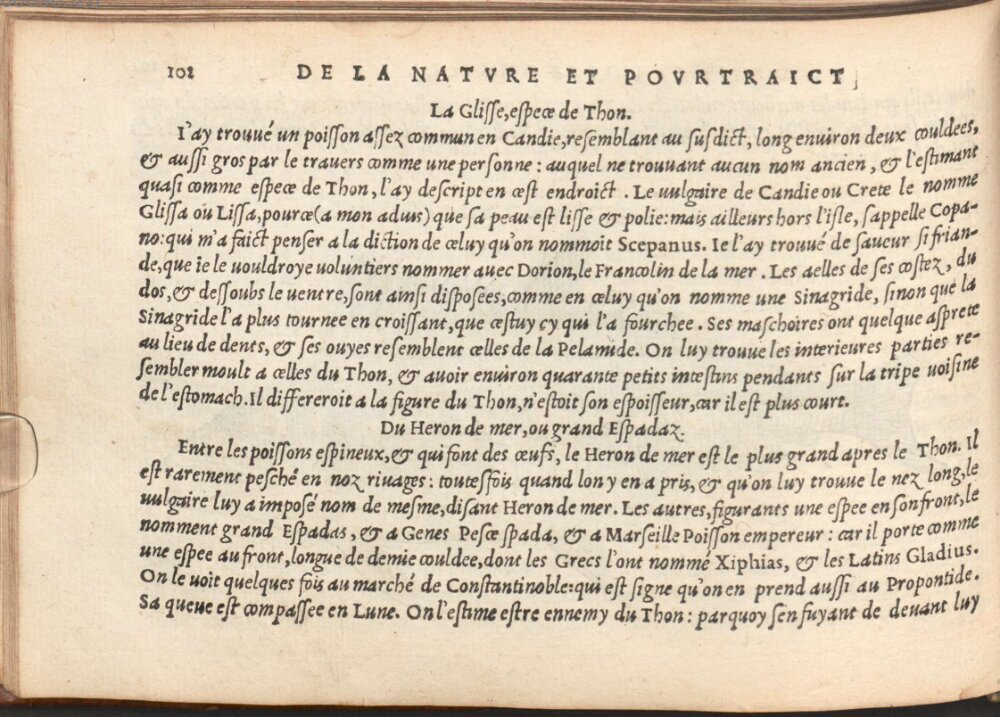 102 DE LA NATVRE ET POVRTRAICT
La Glisse, espece de Thon.
I'ay trouué un poisson assez commun en Candie, resemblant au susdict, long enuiron deux couldees,
& aussi gros par le trauers comme une personne: auquel ne trouuant aucun nom ancien, & l'estimant
quasi comme espece de Thon, l'ay descript en cest endroict. Le uulgaire de Candie ou Crete le nomme
Glissa ou Lissa, pource (a mon aduis) que sa peau est lisse & polie: mais ailleurs hors l'isle, s'appelle Copa-
no: qui m'a faict penser a la diction de celuy qu'on nommoit Scepanus. Ie l'ay trouué de saueur si frian-
de, que ie le vouldroye uoluntiers nommer auec Dorion, le Francolin de la mer. Les aelles de ses costez, du
dos, & dessoubs le uentre, sont ainsi disposées, comme en celuy qu'on nomme une Sinagride, sinon que la
Sinagride l'a plus tournee en croissant, que cestuy cy qui l'a fourchee. Ses maschoires ont quelque asprete
au lieu de dents, & ses ouyes resemblent celles de la Pelamide. On luy trouue les interieures parties re-
sembler moult a celles du Thon, & auoir enuiron quarante petits intestins pendants sur la tripe uoisine
de l'estomach. Il differeroit a la figure du Thon, n'estoit son espoisseur, car il est plus court.
Du Heron de mer, ou grand Espadaz.
Entre les poissons espineux, & qui font des œufs, le Heron de mer est le plus grand apres le Thon. Il
est rarement pesché en noz riuages: toutesfois quand lon y en a pris, & qu'on luy trouue le nez long, le
uulgaire luy a imposé nom de mesme, disant Heron de mer. Les autres, figurants une espee en son front, le
nomment grand Espadas, & a Genes Pesce spada, & a Marseille Poisson empereur: car il porte comme
une espee au front, longue de demie couldee, dont les Grecs l'ont nommé Xiphias, & les Latins Gladius.
On le uoit quelques fois au marché de Constantinoble: qui est signe qu'on en prend aussi au Propontide.
Sa queue est compassee en Lune. On l'estime estre ennemy du Thon: parquoy s'en fuyant de deuant luy